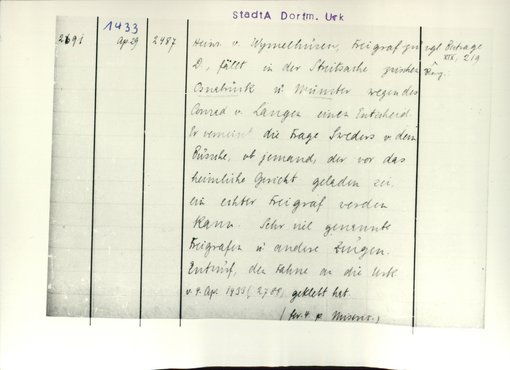 StadtA Dortm. Urk
1433
2691 Apr 29 2487 Heinr. v. Wymelhusen, Freigraf zu vgl. Beiträge
D., fällt in der Streitsache zwischen XIX, 219
Osnabrück u Münster wegen des
Conrad v. Langen einen Entscheid.
Er verneint die Frage Sweders v. dem
Büsche, ob jemand, der vor das
heimliche Gericht geladen sei,
ein echter Freigraf werden
kann. Sehr viel genannte
Freigrafen u andere Zeugen.
Entwurf, den Fahne an die Urk
v. 4. Apr. 1433 geklebt hat.
(fer. 4 p. Miseric.)